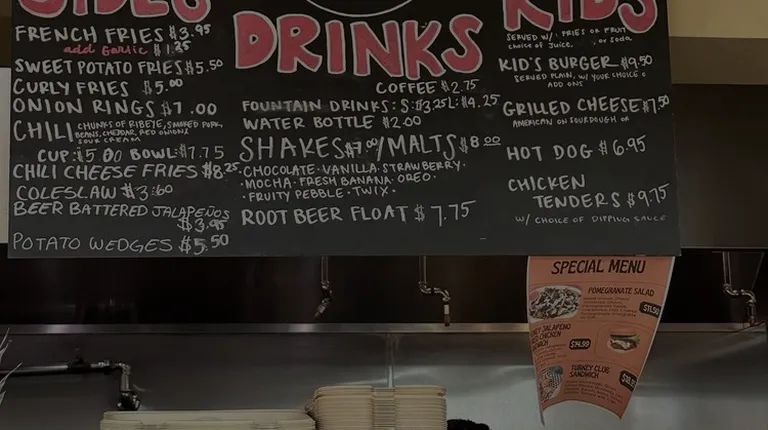 SIDES
FRENCH FRIES $3.95
add Garlic $1.25
SWEET POTATO FRIES $5.50
CURLY FRIES $5.00
ONION RINGS $7.00
CHILI CHUNKS OF RIBEYE, SMOKED PORK,
BEANS, CHEDDAR, RED ONIONS
SOUR CREAM
CUP: $5.00 BOWL: $7.75
CHILI CHEESE FRIES $8.25
COLESLAW $3.60
BEER BATTERED JALAPEÑOS
$3.95
POTATO WEDGES $5.50
DRINKS
COFFEE $2.75
FOUNTAIN DRINKS: S: $3.25 L: $4.25
WATER BOTTLE $2.00
SHAKES $7.00/MALTS $8.00
· CHOCOLATE · VANILLA · STRAWBERRY ·
· MOCHA · FRESH BANANA · OREO ·
· FRUITY PEBBLE · TWIX ·
ROOT BEER FLOAT $7.75
KIDS
SERVED W/ FRIES OR FRUIT
choice of Juice, or soda
KID'S BURGER $9.50
SERVED PLAIN, W/ YOUR CHOICE
ADD ONS
GRILLED CHEESE $7.50
AMERICAN ON SOURDOUGH OR
HOT DOG $6.95
CHICKEN
TENDERS $9.75
W/ CHOICE OF DIPPING SAUCE
SPECIAL MENU
POMEGRANATE SALAD
JALAPENO
CHICKEN
$14.99
TURKEY CLUB
SANDWICH